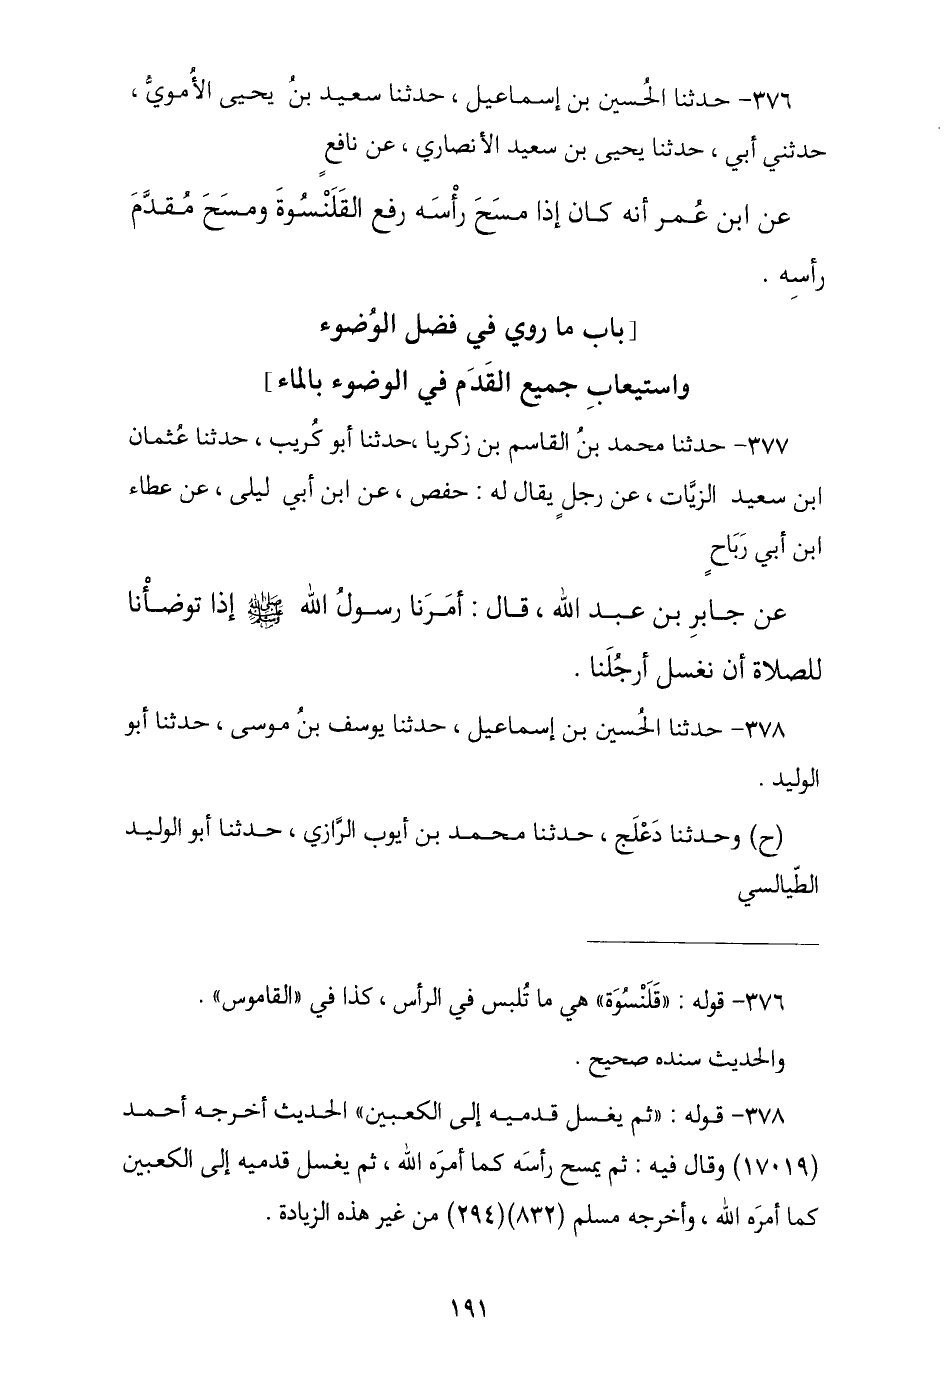 ٣٧٦- حدثنا الحُسين بن إسماعيل ، حدثنا سعيد بنُ يحيى الأُمويُّ ،
حدثني أبي ، حدثنا يحيى بن سعيد الأنصاري ، عن نافعٍ
عن ابن عُمر أنه كان إذا مسَحَ رأْسَه رفع القَلَنْسُوةَ ومسَحَ مُقدَّمَ
رأسِه .
[باب ما روي في فضل الوُضوء
واستيعابِ جميع القَدَم في الوضوء بالماء]
٣٧٧- حدثنا محمد بنُ القاسم بن زكريا ،حدثنا أبو كُريب ، حدثنا عُثمان
ابن سعيد الزيَّات ، عن رجلٍ يقال له : حفص ، عن ابن أبي ليلى ، عن عطاء
ابن أبي رَبَاحٍ
عن جابرِ بن عبد الله ، قال : أمَرَنا رسولُ الله ﷺ إذا توضأْنا
للصلاة أن نغسل أرجُلَنا .
٣٧٨- حدثنا الحُسين بن إسماعيل ، حدثنا يوسف بنُ موسى ، حدثنا أبو
الوليد .
(ح) وحدثنا دَعْلَج ، حدثنا محمد بن أيوب الرَّازي ، حدثنا أبو الوليد
الطَّيالسي
٣٧٦- قوله : «قَلَنْسُوَة» هي ما تُلبس في الرأس ، كذا في «القاموس» .
والحديث سنده صحيح .
٣٧٨- قوله : «ثم يغسل قدميه إلى الكعبين» الحديث أخرجه أحمد
(١٧٠١٩) وقال فيه : ثم يمسح رأسَه كما أمرَه الله ، ثم يغسل قدميه إلى الكعبين
كما أمرَه الله ، وأخرجه مسلم (٨٣٢)(٢٩٤) من غير هذه الزيادة .
١٩١